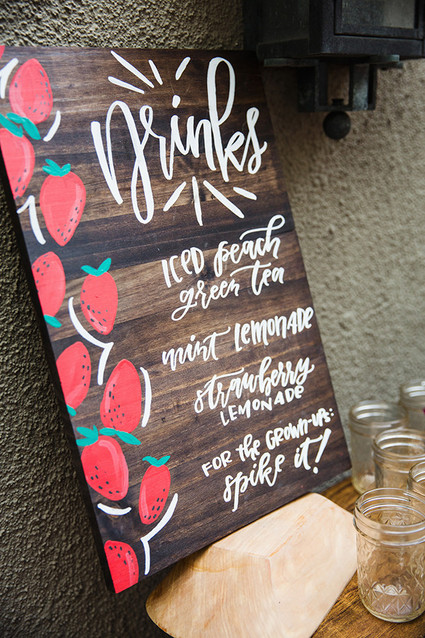 Drinks
ICED peach
green tea
mint LEMONADE
strawberry
LEMONADE
FOR THE GROWN-UPS:
spike it!